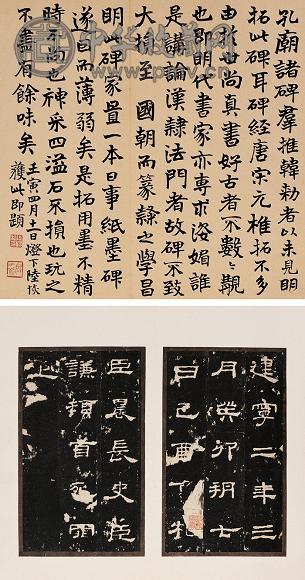 中华收藏网
孔廟諸碑群推韓勅者以未見明
拓此碑耳碑經唐宋元椎拓不多
由於世尚真書好古者不數〻覯
也即明代書家亦專求姿媚誰
是講論漢隸法門者故碑不致
大損至 國朝而篆隸之學昌
明碑家置一本日事紙墨碑
遂因而薄弱矣是拓用墨不精
時不尚也神采四溢石不損也玩之
不盡有餘味矣 壬寅四月十日燈下陸恢
獲此即題
建寧二年三
月癸卯朔七
日己酉
臣晨長史臣
謙頓首死罪